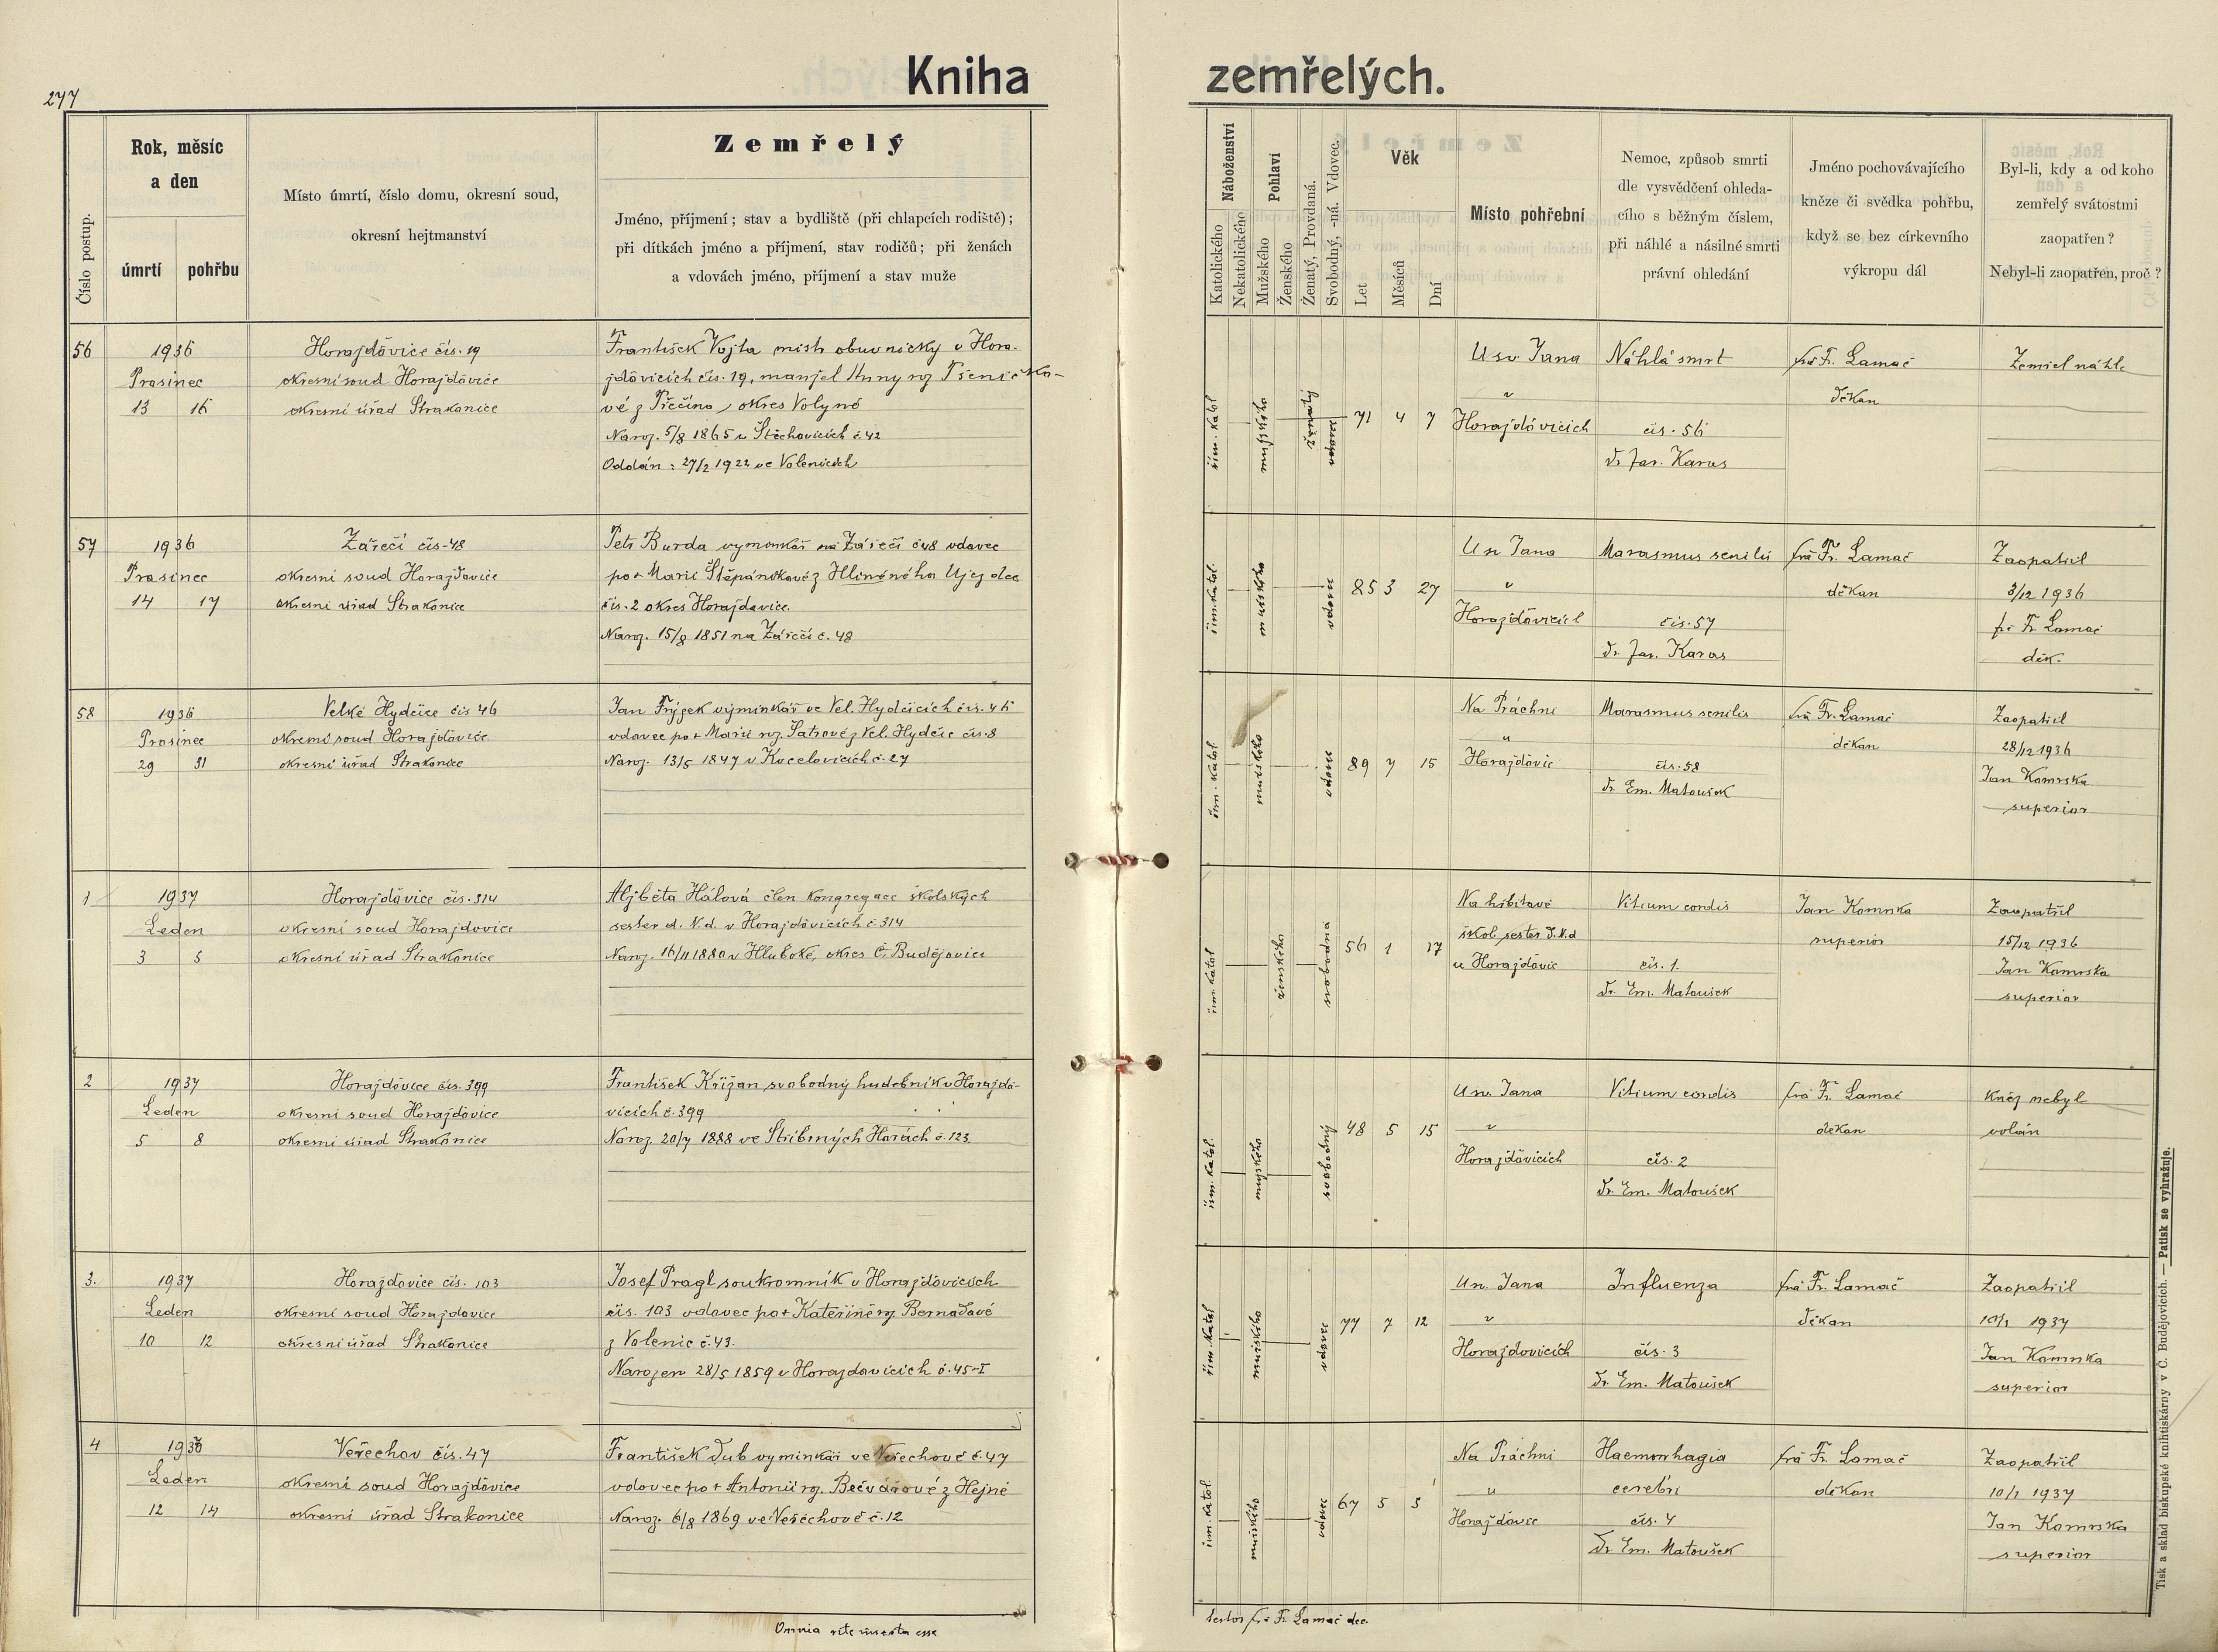 277
Kniha zemřelých.
Číslo postup.
Rok, měsíc
a den
úmrtí
pohřbu
Místo úmrtí, číslo domu, okresní soud,
okresní hejtmanství
Zemřelý
Jméno, příjmení; stav a bydliště (při chlapcích rodiště);
při dítkách jméno a příjmení, stav rodičů; při ženách
a vdovách jméno, příjmení a stav muže
Náboženství
Katolického
Nekatolického
Pohlaví
Mužského
Ženského
Ženatý, Provdaná.
Svobodný, -ná. Vdovec.
Věk
Let
Měsíců
Dní
Místo pohřební
Nemoc, způsob smrti
dle vysvědčení ohleda-
cího s běžným číslem,
při náhlé a násilné smrti
právní ohledání
Jméno pochovávajícího
kněze či svědka pohřbu,
když se bez církevního
výkropu dál
Byl-li, kdy a od koho
zemřelý svátostmi
zaopatřen?
Nebyl-li zaopatřen, proč?
56
1936
Prosinec
13 16
Horažďovice čís. 19
okresní soud Horažďovice
okresní úřad Strakonice
František Vojta mistr obuvnický v Hora-
žďovicích čís. 19, manžel Anny roz Pšeničko-
vé z Přečína, okres Volyně
Naroz. 5/8 1865 v Štěchovicích č. 42
Oddán: 27/2 1922 ve Volenicích
řím. katol
mužského
ženatý
vdovec
71 4 7
U sv. Jana
v
Horažďovicích
Náhlá smrt
čís. 56
Dr Jar. Karas
frá Fr. Lamač
děkan
Zemřel náhle
57
1936
Prosinec
14 17
Zářečí čís. 48
okresní soud Horažďovice
okresní úřad Strakonice
Petr Burda vyminkář na Zářečí č 48 vdovec
po + Marii Štěpánkové z Hliněného Újezdce
čís. 2 okres Horažďovice.
Naroz. 15/8 1851 na Zářečí č. 48
řím. katol.
mužského
vdovec
85 3 27
U sv. Jana
v
Horažďovicích
Marasmus senilis
čís. 57
Dr. Jar. Karas
frá Fr. Lamač
děkan
Zaopatřil
3/12 1936
frá Fr. Lamač
děk.
58
1936
Prosinec
29 31
Velké Hydčice čís 46
okresní soud Horažďovice
okresní úřad Strakonice
Jan Frýzek výminkář ve Vel. Hydčicích čís. 46
vdovec po + Marii roz. Šatrové z Vel. Hydčic čís. 8
Naroz. 13/5 1847 v Kocelovicích č. 27
řím. katol
mužského
vdovec
89 7 15
Na Práchni
u
Horažďovic
Marasmus senilis
čís. 58
Dr Em. Matoušek
frá Fr. Lamač
děkan
Zaopatřil
28/12 1936
Jan Komrska
superior
1
1937
Leden
3 5
Horažďovice čís. 314
okresní soud Horažďovice
okresní úřad Strakonice
Alžběta Hálová člen kongregace školských
sester d. N. d. v Horažďovicích č. 314
Naroz. 16/11 1880 v Hluboké, okres Č. Budějovice
řím. katol
ženského
svobodna
56 1 17
Na hřbitově
škol. sester D. N. d
u Horažďovic
Vitium cordis
čís. 1.
Dr. Em. Matoušek
Jan Komrska
superior
Zaopatřil
15/12 1936
Jan Komrska
superior
2
1937
Leden
5 8
Horažďovice čís. 399
okresní soud Horažďovice
okresní úřad Strakonice
František Křižan svobodný hudebník v Horažďo-
vicích č. 399
Naroz. 20/7 1888 ve Stříbrných Horách č. 123
řím. katol.
mužského
svobodný
48 5 15
U sv. Jana
v
Horažďovicích
Vitium cordis
čís. 2
Dr. Em. Matoušek
frá Fr. Lamač
děkan
Kněz nebyl
volán
3.
1937
Leden
10 12
Horažďovice čís. 103
okresní soud Horažďovice
okresní úřad Strakonice
Josef Pragl soukromník v Horažďovicích
čís. 103 vdovec po + Kateřině roz. Bernadové
z Volenic č. 43.
Narozen 28/5 1859 v Horažďovicích č. 45-I
řím. katol
mužského
vdovec
77 7 12
U sv. Jana
v
Horažďovicích
Influenza
čís. 3
Dr. Em. Matoušek
frá Fr. Lamač
děkan
Zaopatřil
10/1 1937
Jan Komrska
superior
4
1937
Leden
12 14
Veřechov čís. 47
okresní soud Horažďovice
okresní úřad Strakonice
František Dub vyminkář ve Veřechově č. 47
vdovec po + Antonii roz. Bečvářové z Hejné
Naroz. 6/8 1869 ve Veřechově č. 12
řím. katol.
mužského
vdovec
67 5 5
Na Práchni
u
Horažďovic
Haemorrhagia
cerebri
čís. 4
Dr Em. Matoušek
frá Fr. Lamač
děkan
Zaopatřil
10/1 1937
Jan Komrska
superior
Omnia rite inserta esse
testor frá Fr. Lamač dec.
Tisk a sklad biskupské knihtiskárny v Č. Budějovicích. — Patisk se vyhražuje.